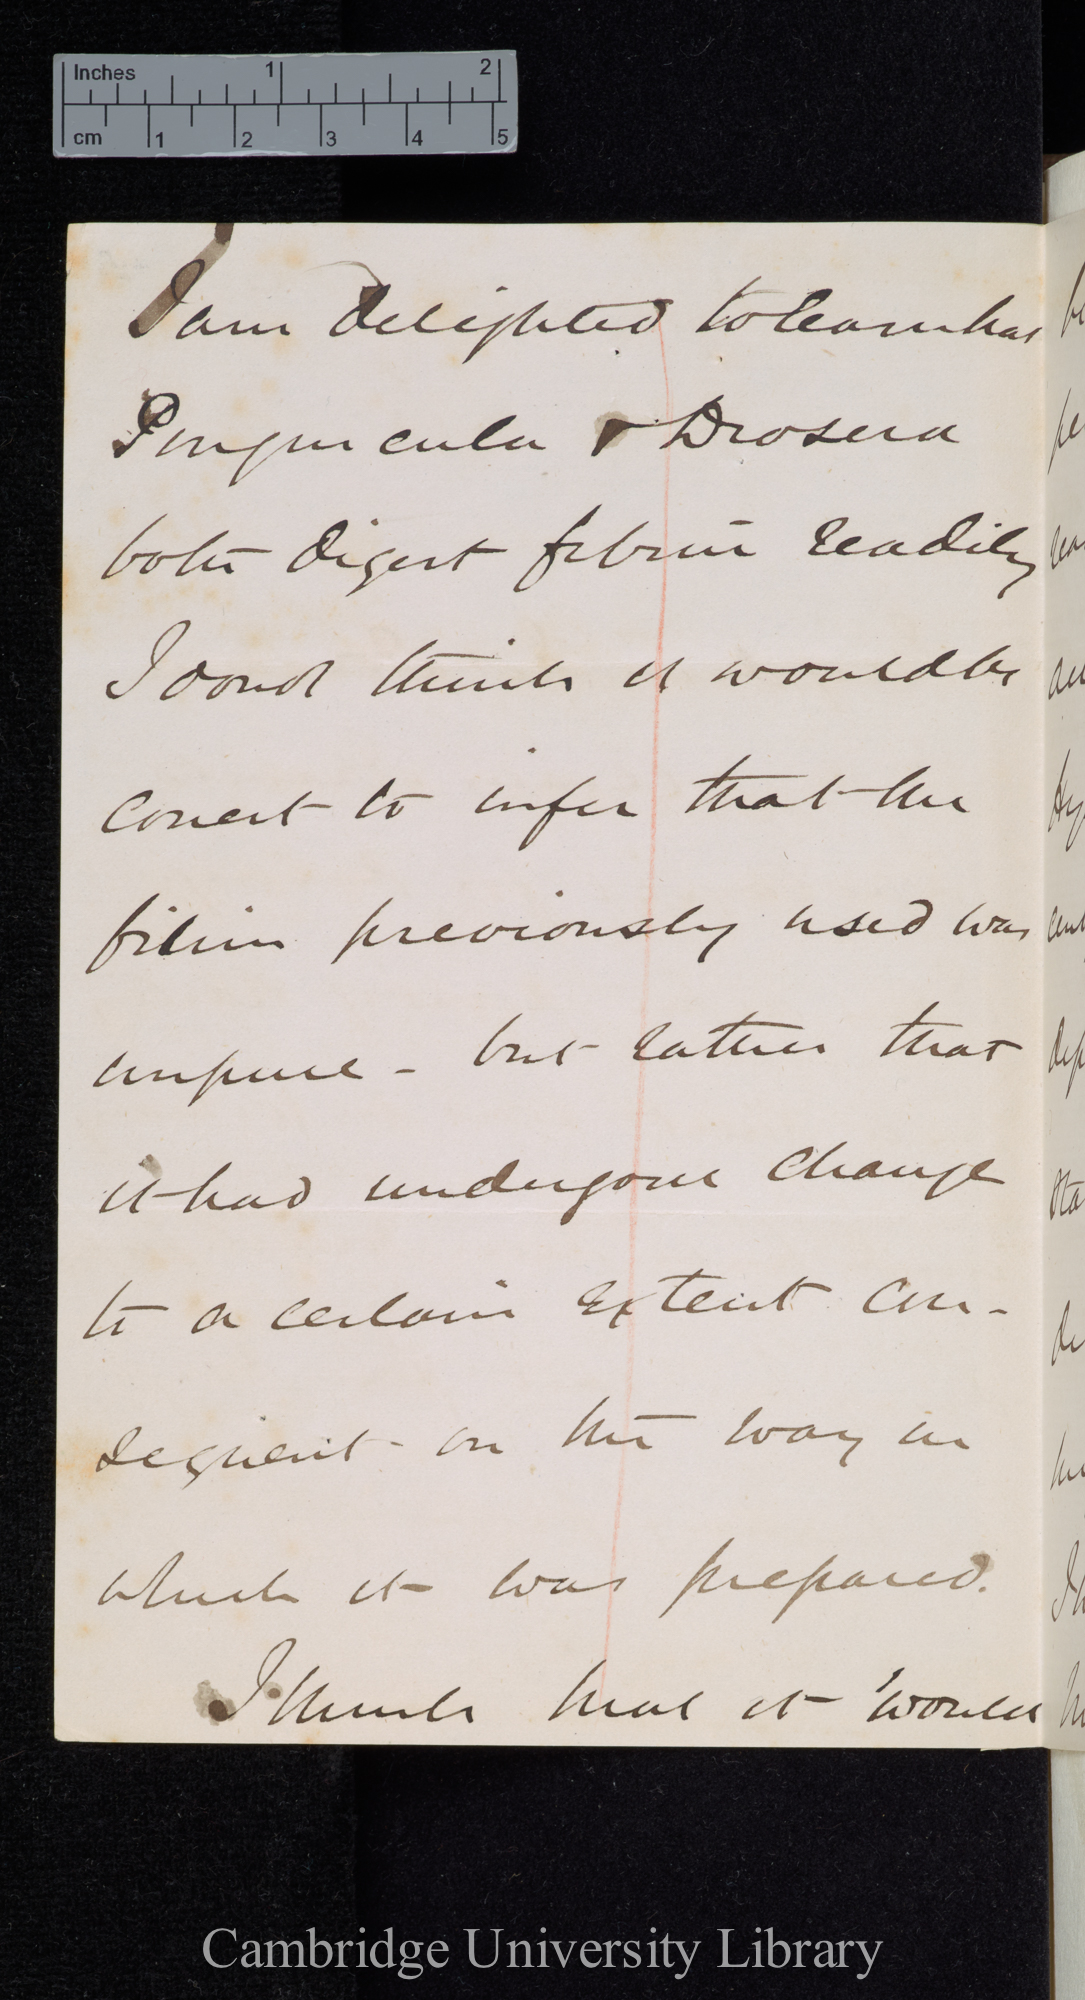 Inches 1 2
cm 1 2 3 4 5
I am delighted to learn that
Pinguicula & Drosera
both digest fibrin readily
I do not think it would be
correct to infer that the
fibrin previously used was
impure - but rather that
it had undergone change
to a certain extent con-
sequent on the way in
which it was prepared.
I think that it would
Cambridge University Library